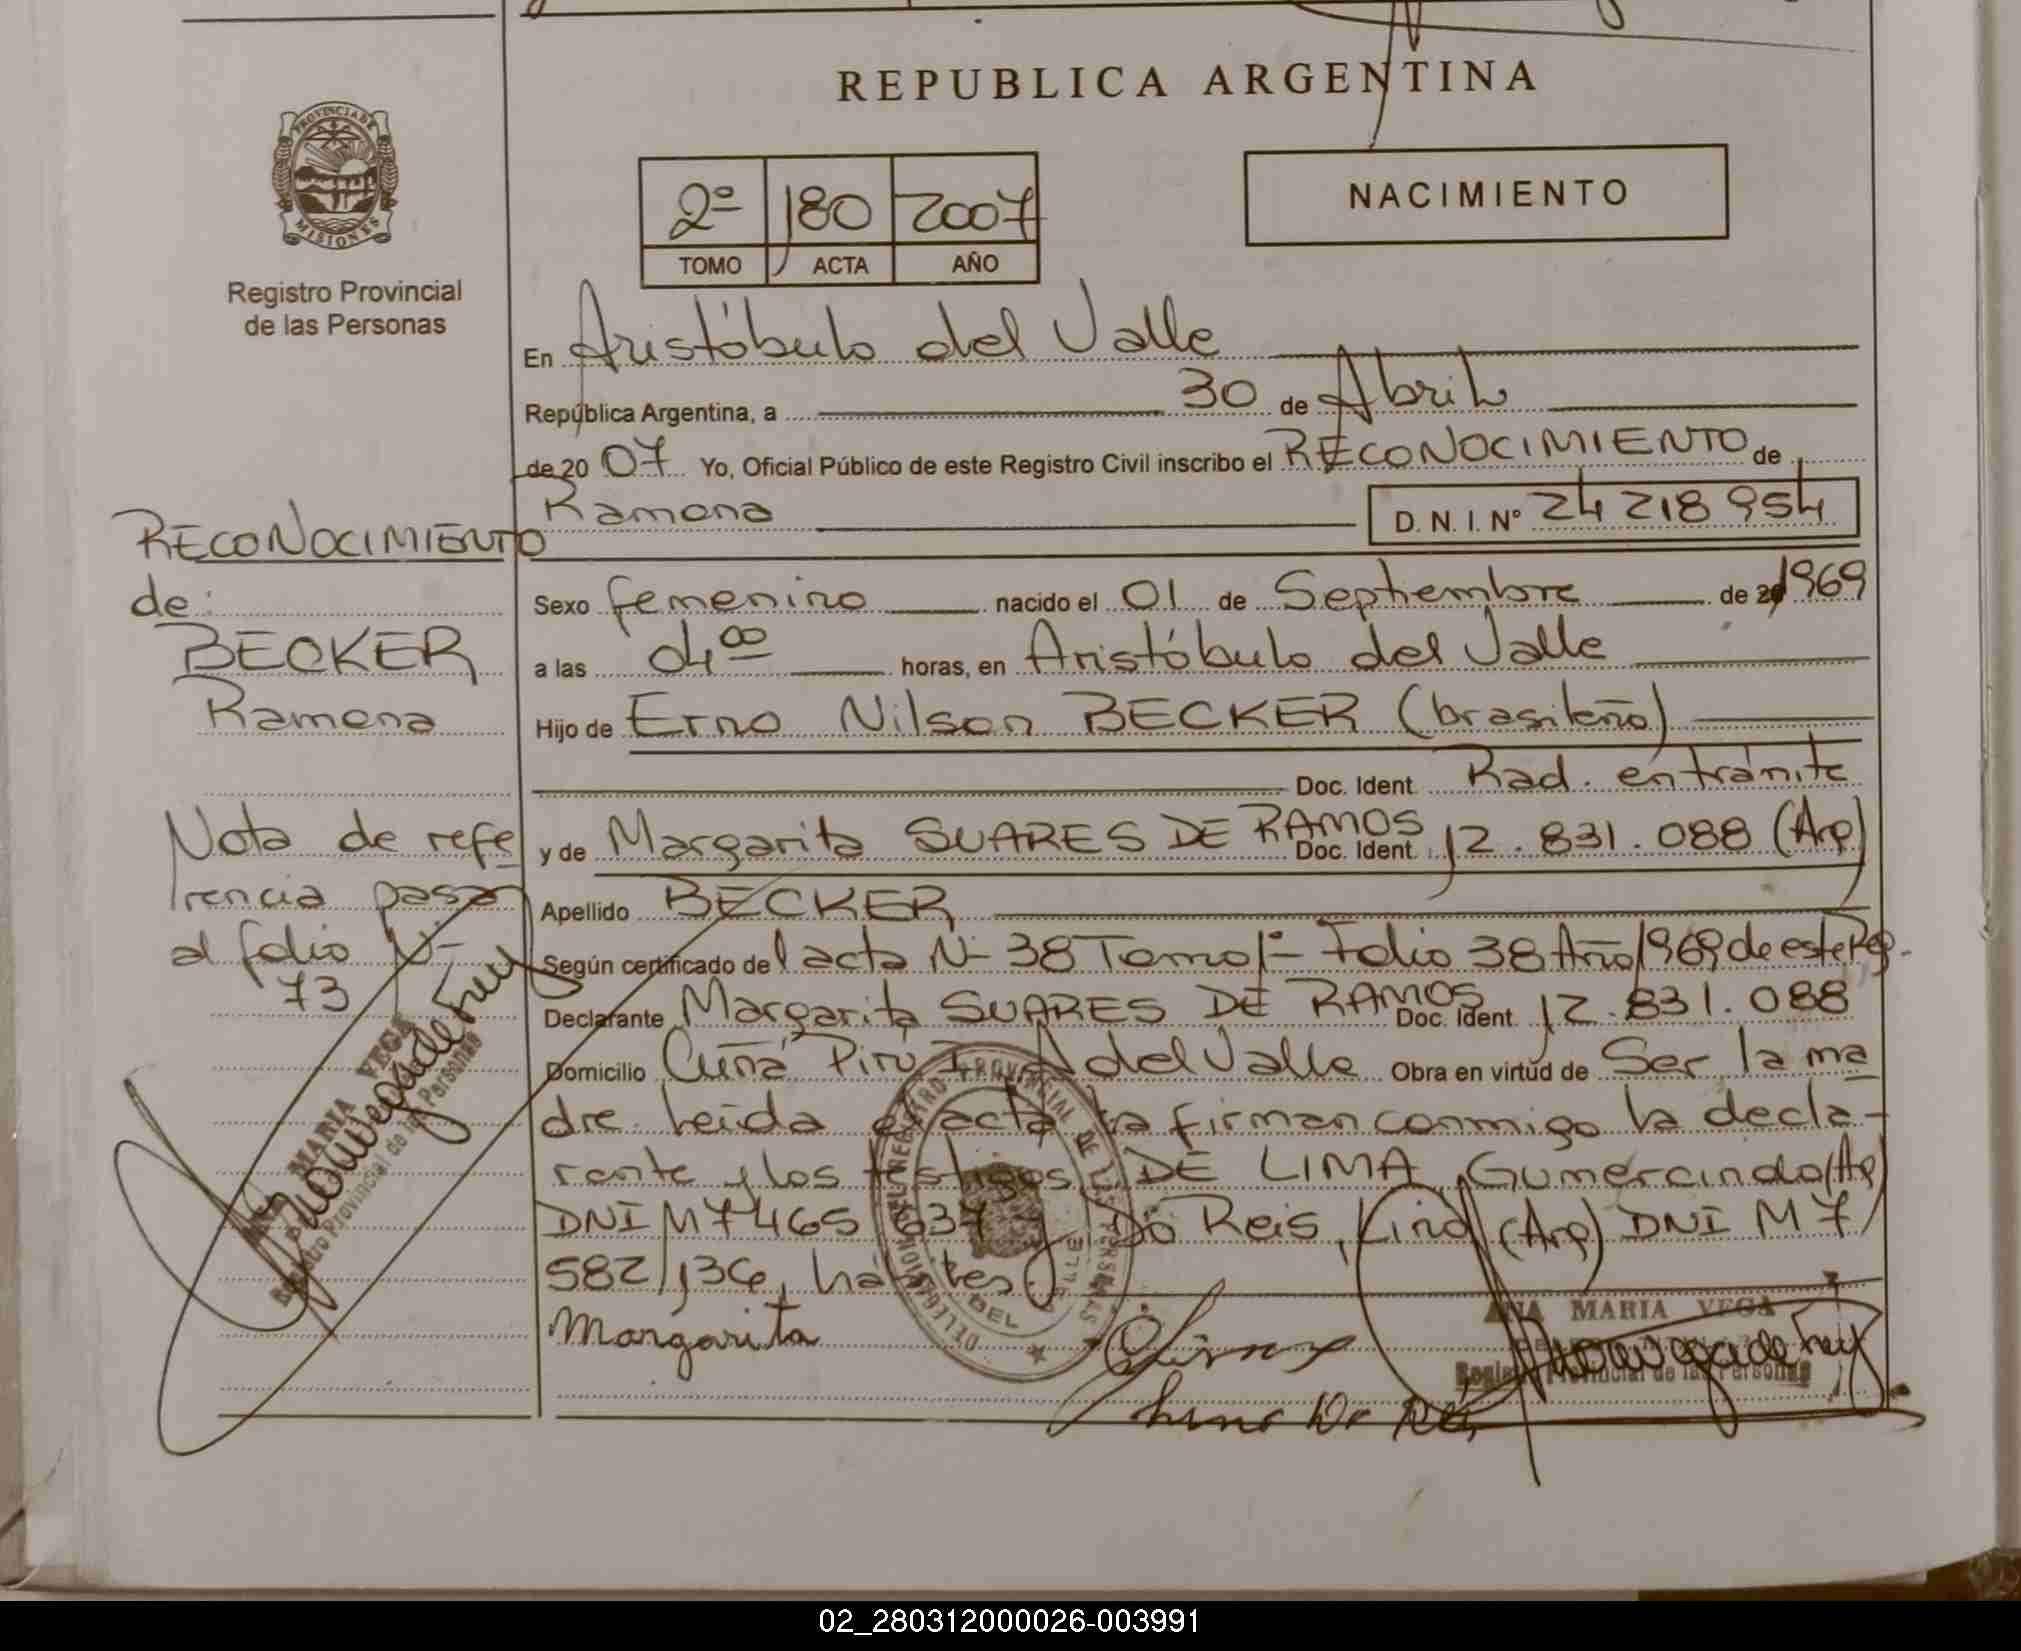 REPUBLICA ARGENTINA
PROVINCIA DE
MISIONES
Registro Provincial
de las Personas
2º 180 2007
TOMO ACTA AÑO
NACIMIENTO
En Aristóbulo del Valle
República Argentina, a 30 de Abril
de 20 07 Yo, Oficial Público de este Registro Civil inscribo el RECONOCIMIENTO de
Ramona D. N. I. Nº 24 218 954
RECONOCIMIENTO
de:
BECKER
Ramona
Nota de refe
rencia pasa
al folio Nº
73
Sexo femenino nacido el 01 de Septiembre de 1969
a las 04 00 horas, en Aristóbulo del Valle
Hijo de Erno Nilson BECKER (brasileño)
Doc. Ident. Rad. en trámite
y de Margarita SUARES DE RAMOS Doc. Ident. 12.831.088 (Arg)
Apellido BECKER
Según certificado del acta Nº 38 Tomo 1º Folio 38 Año 1969 de este Reg.
Declarante Margarita SUARES DE RAMOS Doc. Ident. 12.831.088
Domicilio Cuñá Pirú I A del Valle Obra en virtud de Ser la ma
dre. Leída el acta la firman conmigo la decla-
rante y los testigos DE LIMA, Gumercindo (Arg)
DNI M 7465 637 y Do Reis, Lino (Arg) DNI M 7
582,136, hábiles.
Margarita
ANA MARIA VEGA
Registro Provincial de las Personas
ANA MARIA VEGA
Registro Provincial de las Personas
Lino Do Reis
DELEGACION DEL REGISTRO PROVINCIAL DE LAS PERSONAS
DEL VALLE
02_280312000026-003991